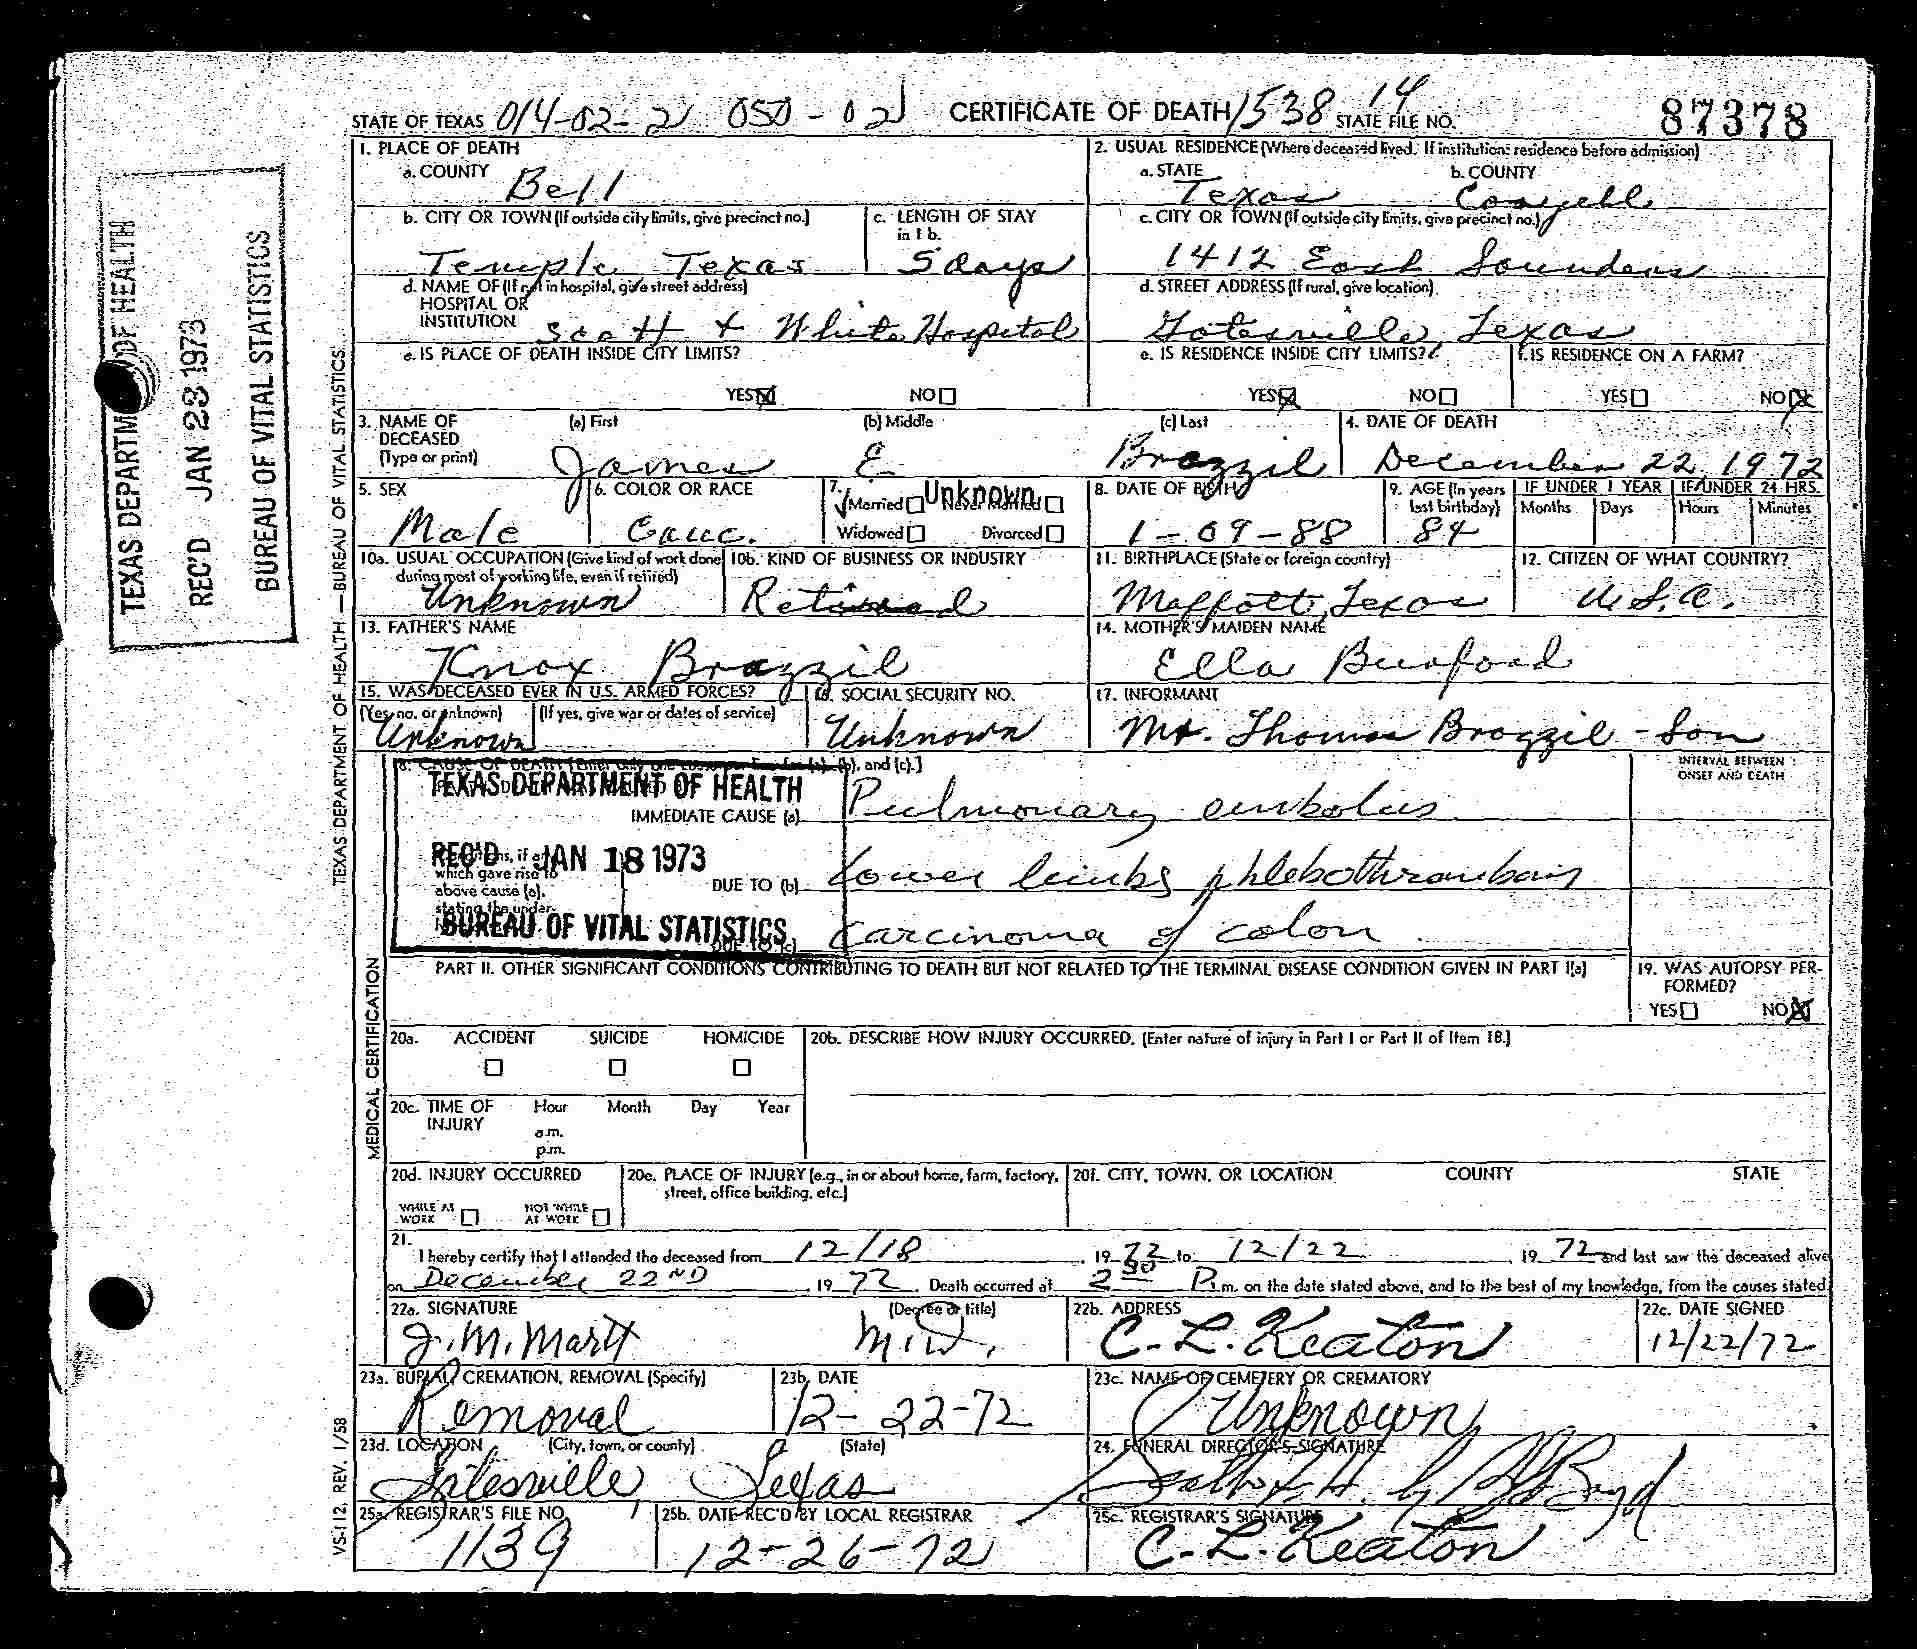 STATE OF TEXAS 014-02-2 050-02 CERTIFICATE OF DEATH 1538 14 STATE FILE NO. 87378
1. PLACE OF DEATH
a. COUNTY Bell
2. USUAL RESIDENCE (Where deceased lived. If institution: residence before admission)
a. STATE Texas b. COUNTY Coryell
b. CITY OR TOWN (If outside city limits, give precinct no.) Temple, Texas
c. LENGTH OF STAY in 1 b. 5 days
c. CITY OR TOWN (If outside city limits, give precinct no.) 1412 East Saunders
d. NAME OF (If not in hospital, give street address)
HOSPITAL OR
INSTITUTION Scott & White Hospital
d. STREET ADDRESS (If rural, give location) Gatesville, Texas
e. IS PLACE OF DEATH INSIDE CITY LIMITS?
YES NO
e. IS RESIDENCE INSIDE CITY LIMITS?
YES NO
f. IS RESIDENCE ON A FARM?
YES NO
3. NAME OF DECEASED (Type or print)
(a) First James (b) Middle E. (c) Last Brazzil
4. DATE OF DEATH December 22 1972
5. SEX Male
6. COLOR OR RACE Cauc.
7. Married Unknown Never Married
Widowed Divorced
8. DATE OF BIRTH 1-09-88
9. AGE (In years last birthday) 84
IF UNDER 1 YEAR Months Days
IF UNDER 24 HRS. Hours Minutes
10a. USUAL OCCUPATION (Give kind of work done during most of working life, even if retired) Unknown
10b. KIND OF BUSINESS OR INDUSTRY Retired
11. BIRTHPLACE (State or foreign country) Moffott, Texas
12. CITIZEN OF WHAT COUNTRY? U.S.A.
13. FATHER'S NAME Knox Brazzil
14. MOTHER'S MAIDEN NAME Ella Buaford
15. WAS DECEASED EVER IN U.S. ARMED FORCES?
(Yes, no, or unknown) Unknown (If yes, give war or dates of service)
16. SOCIAL SECURITY NO. Unknown
17. INFORMANT Mr. Thomas Brazzil - Son
18. CAUSE OF DEATH (b), and (c).]
INTERVAL BETWEEN ONSET AND DEATH
TEXAS DEPARTMENT OF HEALTH
IMMEDIATE CAUSE (a) Pulmonary embolus
REC'D JAN 18 1973
which gave rise to
above cause (a),
stating the under-
DUE TO (b) Lower limbs phlebothrombosis
BUREAU OF VITAL STATISTICS
DUE TO (c) Carcinoma of colon
PART II. OTHER SIGNIFICANT CONDITIONS CONTRIBUTING TO DEATH BUT NOT RELATED TO THE TERMINAL DISEASE CONDITION GIVEN IN PART I(a)
19. WAS AUTOPSY PERFORMED?
YES NO
20a. ACCIDENT SUICIDE HOMICIDE
20b. DESCRIBE HOW INJURY OCCURRED. (Enter nature of injury in Part I or Part II of Item 18.)
20c. TIME OF INJURY Hour Month Day Year
a.m.
p.m.
20d. INJURY OCCURRED
WHILE AT WORK NOT WHILE AT WORK
20e. PLACE OF INJURY (e.g., in or about home, farm, factory, street, office building, etc.)
20f. CITY, TOWN, OR LOCATION COUNTY STATE
21.
I hereby certify that I attended the deceased from 12/18, 1972 to 12/22, 1972 and last saw the deceased alive
on December 22ND, 1972. Death occurred at 2 30 P.m. on the date stated above, and to the best of my knowledge, from the causes stated.
22a. SIGNATURE (Degree or title) J. M. Martt M.D.
22b. ADDRESS C. L. Keaton
22c. DATE SIGNED 12/22/72
23a. BURIAL, CREMATION, REMOVAL (Specify) Removal
23b. DATE 12-22-72
23c. NAME OF CEMETERY OR CREMATORY Unknown
23d. LOCATION (City, town, or county) (State) Gatesville, Texas
24. FUNERAL DIRECTOR'S SIGNATURE
25a. REGISTRAR'S FILE NO. 1139
25b. DATE REC'D BY LOCAL REGISTRAR 12-26-72
25c. REGISTRAR'S SIGNATURE C. L. Keaton
TEXAS DEPARTMENT OF HEALTH
REC'D JAN 23 1973
BUREAU OF VITAL STATISTICS
TEXAS DEPARTMENT OF HEALTH — BUREAU OF VITAL STATISTICS
MEDICAL CERTIFICATION
VS-112, REV. 1/58